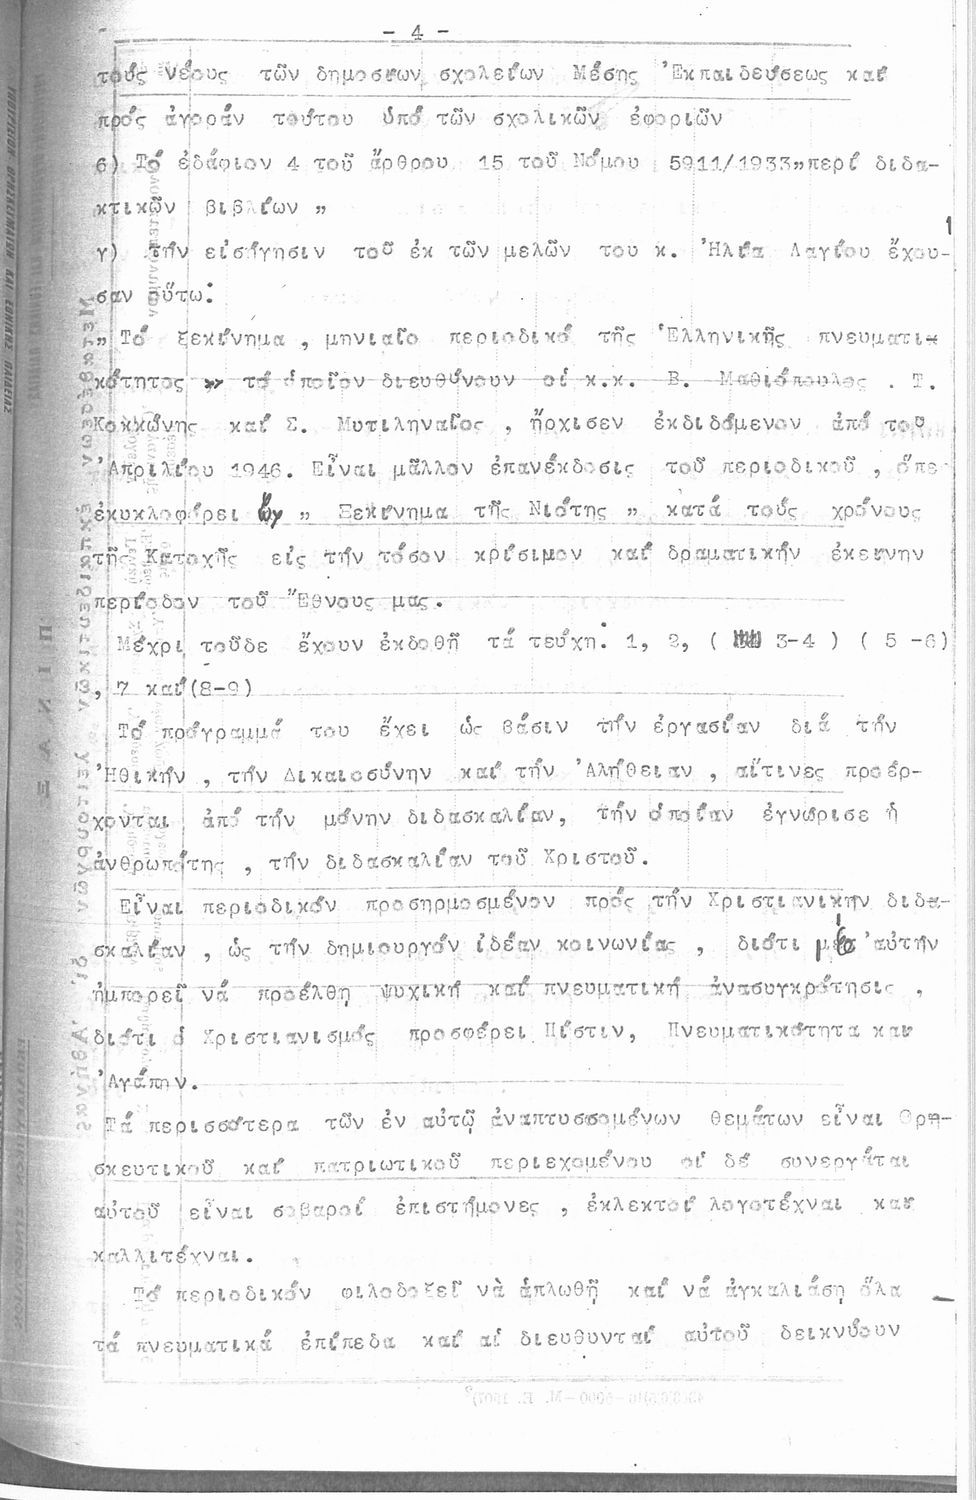 - 4 -
τούς νέους τῶν δημοσίων σχολείων Μέσης Ἐκπαιδεύσεως καί
πρός ἀγοράν τούτου ὑπό τῶν σχολικῶν ἐφοριῶν
6) Τό ἐδάφιον 4 τοῦ ἄρθρου 15 τοῦ Νόμου 5911/1933 "περί διδα-
κτικῶν βιβλίων "
γ) τήν εἰσήγησιν τοῦ ἐκ τῶν μελῶν του κ. Ἠλία Λαγίου ἔχου-
σαν οὕτω:
" Τό ξεκίνημα , μηνιαῖο περιοδικό τῆς Ἑλληνικῆς πνευματι-
κότητος " τό ὁποῖον διευθύνουν οἱ κ.κ. Β. Μαθιόπουλος . Τ.
Κοκκώνης καί Σ. Μυτιληναῖος , ἤρχισεν ἐκδιδόμενον ἀπό τοῦ
Ἀπριλίου 1946. Εἶναι μᾶλλον ἐπανέκδοσις τοῦ περιοδικοῦ , ὅπερ
ἐκυκλοφόρει ὡς " Ξεκίνημα τῆς Νιότης " κατά τούς χρόνους
τῆς Κατοχῆς εἰς τήν τόσον κρίσιμον καί δραματικήν ἐκείνην
περίοδον τοῦ Ἔθνους μας.
Μέχρι τοῦδε ἔχουν ἐκδοθῆ τά τεύχη: 1, 2, ( 3-4 ) ( 5 -6)
, 7 καί (8-9)
Τό πρόγραμμά του ἔχει ὡς βάσιν τήν ἐργασίαν διά τήν
Ἠθικήν , τήν Δικαιοσύνην καί τήν Ἀλήθειαν , αἵτινες προέρ-
χονται ἀπό τήν μόνην διδασκαλίαν, τήν ὁποίαν ἐγνώρισε ἡ
ἀνθρωπότης , τήν διδασκαλίαν τοῦ Χριστοῦ.
Εἶναι περιοδικόν προσηρμοσμένον πρός τήν Χριστιανικήν διδα-
σκαλίαν , ὡς τήν δημιουργόν ἰδέαν κοινωνίας , διότι μέσ' αὐτήν
ἠμπορεῖ νά προέλθη ψυχική καί πνευματική ἀνασυγκρότησις ,
διότι ὁ Χριστιανισμός προσφέρει Πίστιν, Πνευματικότητα καί
Ἀγάπην.
Τά περισσότερα τῶν ἐν αὐτῷ ἀναπτυσσομένων θεμάτων εἶναι Θρη-
σκευτικοῦ καί πατριωτικοῦ περιεχομένου οἱ δέ συνεργάται
αὐτοῦ εἶναι σοβαροί ἐπιστήμονες , ἐκλεκτοί λογοτέχναι καί
καλλιτέχναι.
Τό περιοδικόν φιλοδοξεῖ νὰ ἁπλωθῆ καί νά ἀγκαλιάση ὅλα
τά πνευματικά ἐπίπεδα καί αἱ διευθυνταί αὐτοῦ δεικνύουν